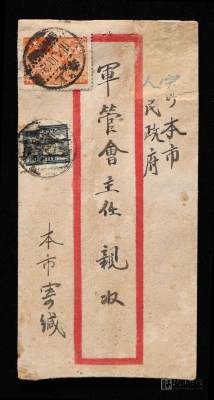 本市
人民政府
軍管會主任 親收
本市寄緘